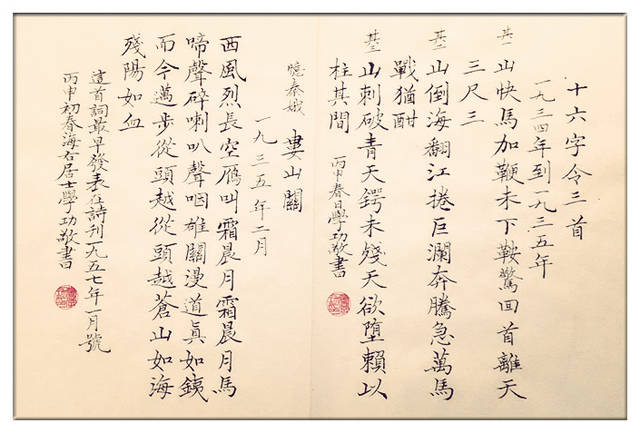 十六字令三首
一九三四年到一九三五年
其一 山快馬加鞭未下鞍驚回首離天
三尺三
其二 山倒海翻江捲巨瀾奔騰急萬馬
戰猶酣
其三 山刺破青天鍔未殘天欲墮賴以
柱其間 丙申春日學功敬書
憶秦娥 婁山關
一九三五年二月
西風烈長空雁叫霜晨月霜晨月馬
啼聲碎喇叭聲咽雄關漫道真如銕
而今邁步從頭越從頭越蒼山如海
殘陽如血
這首詞最早發表在詩刊一九五七年一月號
丙申初春海右居士學功敬書